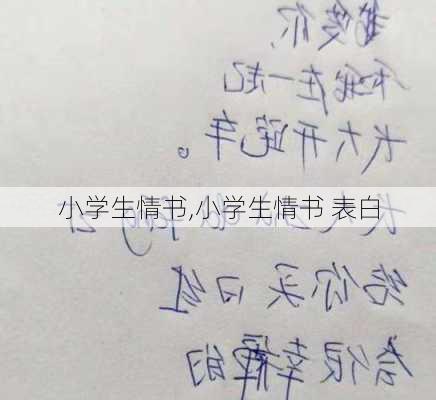 我爱你,
和我在一起
长大开跑车。
小学生情书,小学生情书 表白
给你买口红
会很幸福的